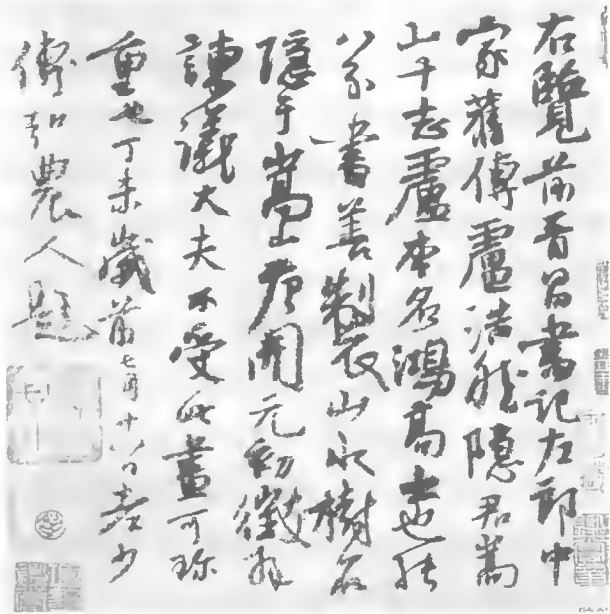 右覽前晋昌書記左郎中
家舊傳盧浩然隱居嵩
山十志盧本名鴻高士也能
八分書善製山水樹石
隱于嵩山唐開元初徵拜
諫議大夫不受此畫可珍
重也丁未歲前七月十八日老少
傅知農人題